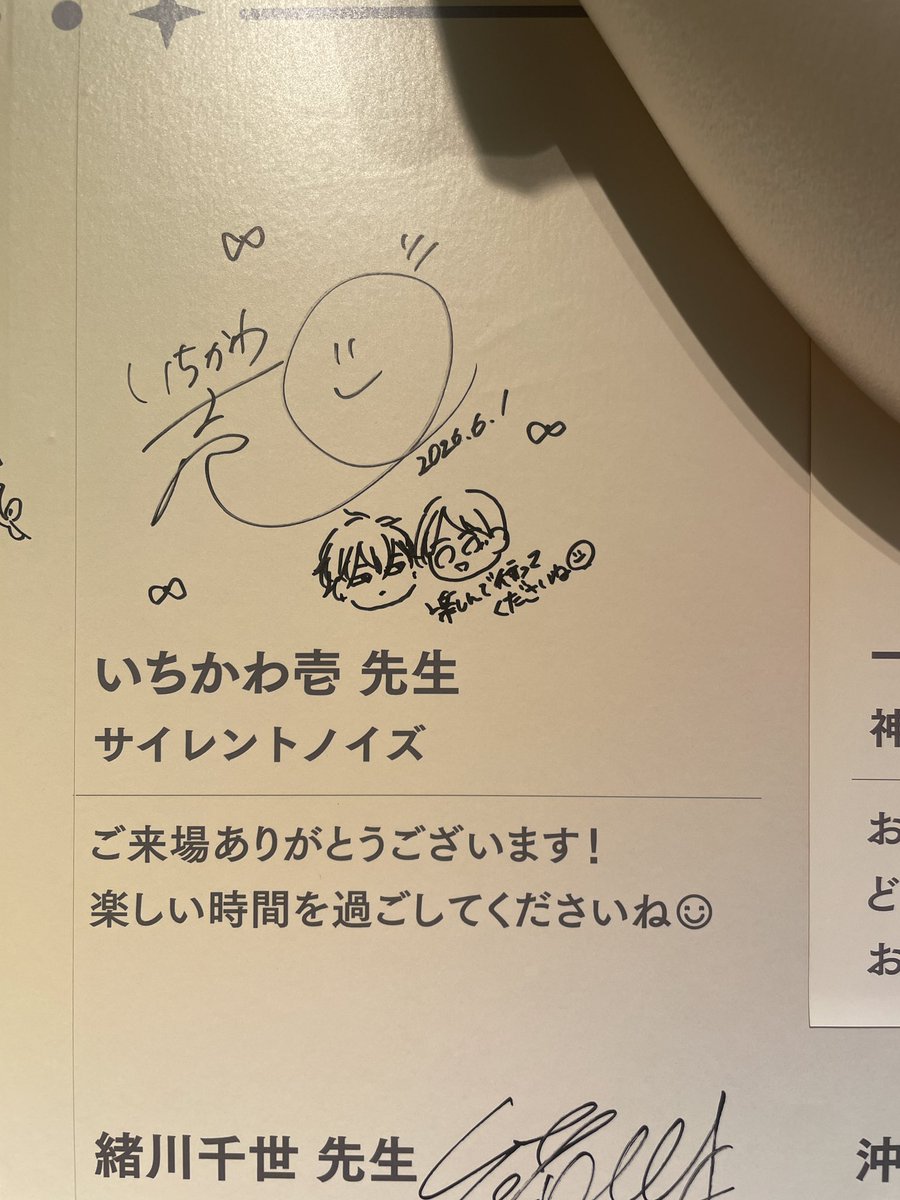 いちかわ
壱
2026.6.1
楽しんで行って
くださいね
いちかわ壱 先生
サイレントノイズ
ご来場ありがとうございます！
楽しい時間を過ごしてくださいね☺
緒川千世 先生
神
お
ど
お
沖